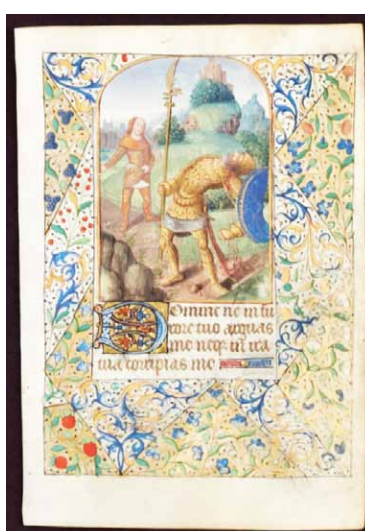 Domine ne in fu
rore tuo arguas
me neq in ira
tua corripias me